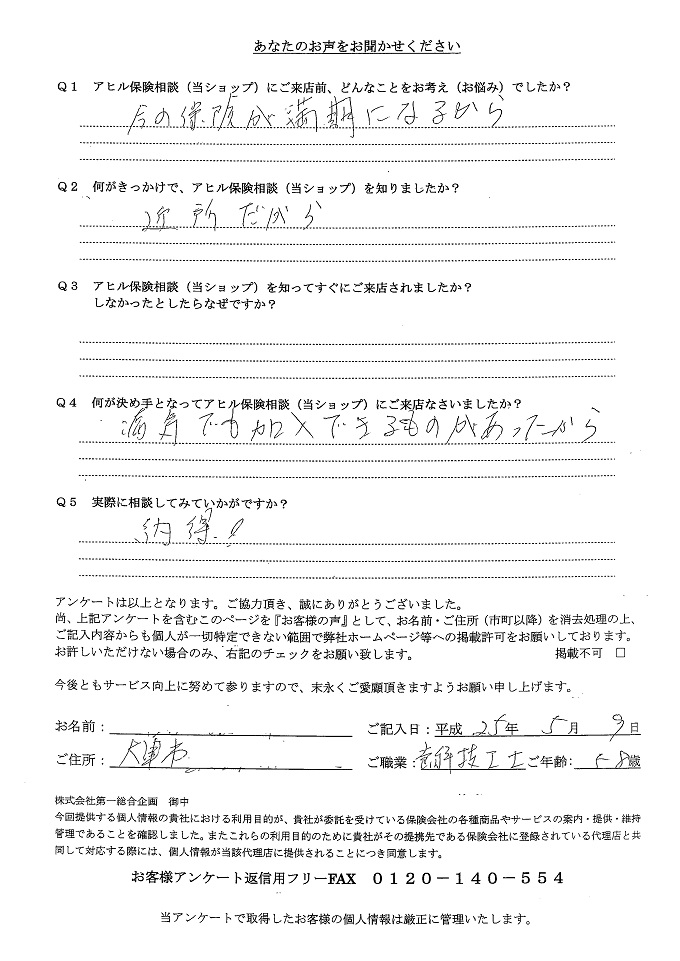 あなたのお声をお聞かせください
Q1 アヒル保険相談（当ショップ）にご来店前、どんなことをお考え（お悩み）でしたか？
今の保険が満期になるから
Q2 何がきっかけで、アヒル保険相談（当ショップ）を知りましたか？
近所だから
Q3 アヒル保険相談（当ショップ）を知ってすぐにご来店されましたか？
しなかったとしたらなぜですか？
Q4 何が決め手となってアヒル保険相談（当ショップ）にご来店なさいましたか？
病気でも加入できるものがあったから
Q5 実際に相談してみていかがですか？
納得!
アンケートは以上となります。ご協力頂き、誠にありがとうございました。
尚、上記アンケートを含むこのページを『お客様の声』として、お名前・ご住所（市町以降）を消去処理の上、
ご記入内容からも個人が一切特定できない範囲で弊社ホームページ等への掲載許可をお願いしております。
お許しいただけない場合のみ、右記のチェックをお願い致します。 掲載不可 □
今後ともサービス向上に努めて参りますので、末永くご愛顧頂きますようお願い申し上げます。
お名前： ご記入日：平成 25年 5月 9日
ご住所： 大津市 ご職業：歯科技工士 ご年齢： 58歳
株式会社第一総合企画 御中
今回提供する個人情報の貴社における利用目的が、貴社が委託を受けている保険会社の各種商品やサービスの案内・提供・維持
管理であることを確認しました。またこれらの利用目的のために貴社がその提携先である保険会社に登録されている代理店と共
同して対応する際には、個人情報が当該代理店に提供されることにつき同意します。
お客様アンケート返信用フリーFAX 0120－140－554
当アンケートで取得したお客様の個人情報は厳正に管理いたします。